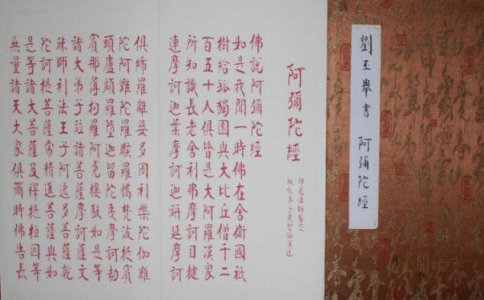 劉玉舉書 阿彌陀經
阿彌陀經
佛說阿彌陀經
如是我聞一時佛在舍衛國祇
樹給孤獨園與大比丘僧千二
百五十人俱皆是大阿羅漢衆
所知識長老舍利弗摩訶目犍
連摩訶迦葉摩訶迦旃延摩訶
俱絺羅離婆多周利槃陀伽難
陀阿難陀羅睺羅憍梵波提賓
頭盧頗羅墮迦留陀夷摩訶劫
賓那薄拘羅阿㝹樓馱如是等
諸大弟子並諸菩薩摩訶薩文
殊師利法王子阿逸多菩薩乾
陀訶提菩薩常精進菩薩與如
是等諸大菩薩及釋提桓因等
無量諸天大衆俱爾時佛告長